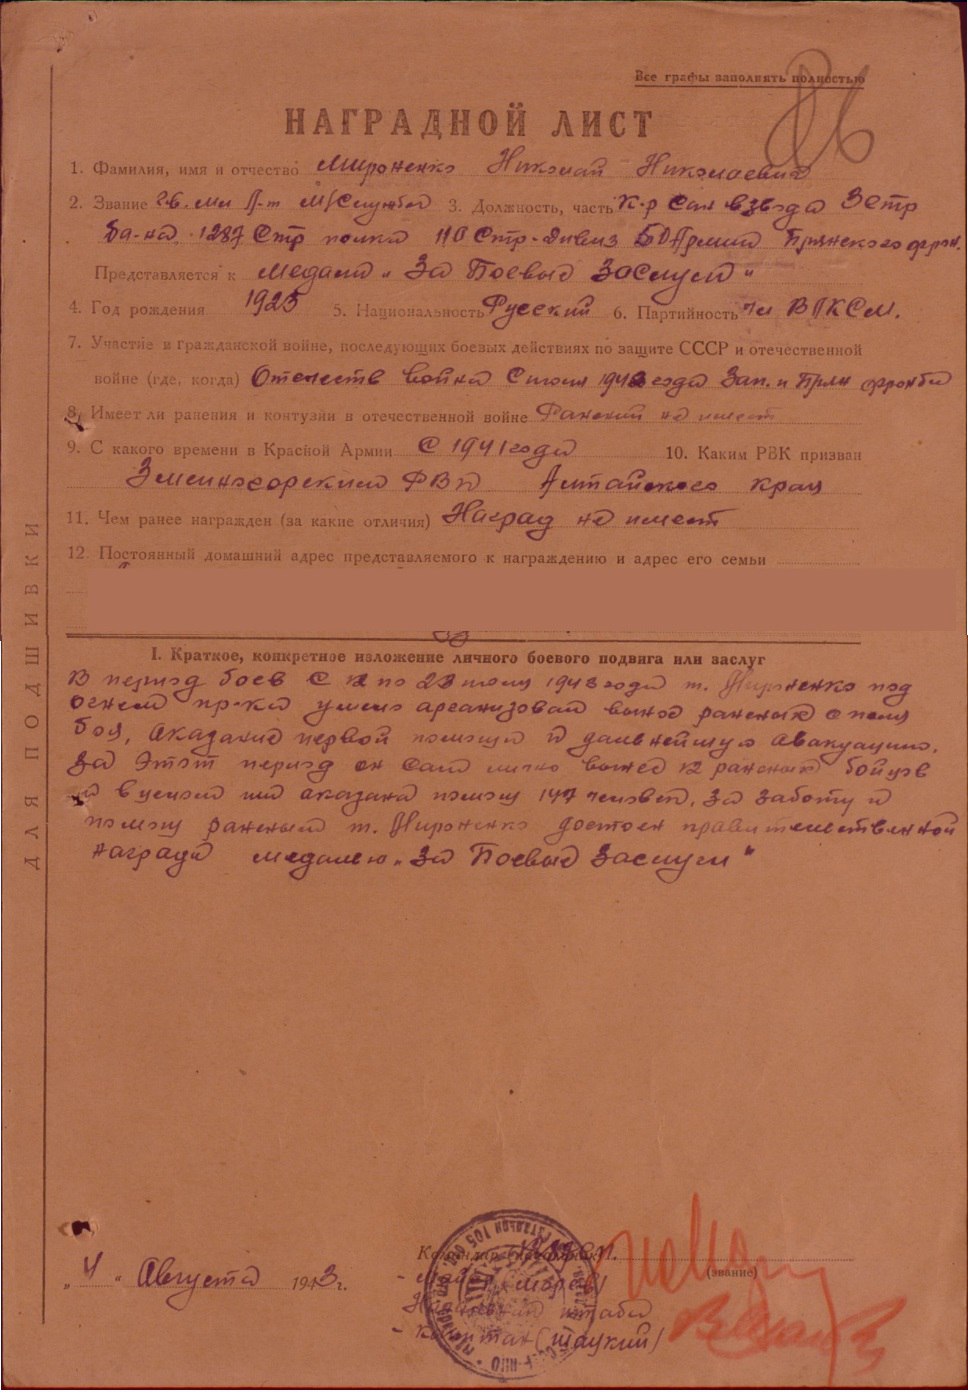 Все графы заполнять полностью
НАГРАДНОЙ ЛИСТ
1. Фамилия, имя и отчество Мироненко Николай Николаевич
2. Звание Гв. мл л-т М/Службы 3. Должность, часть К-р Сан взвода 3 стр
ба-на 1287 Стр полка 110 Стр-дивиз 50 Армии Брянского фрон.
Представляется к медали „За Боевые Заслуги"
4. Год рождения 1923 5. Национальность Русский 6. Партийность чл ВЛКСМ.
7. Участие в гражданской войне, последующих боевых действиях по защите СССР и отечественной
войне (где, когда) Отечеств война С июля 1943 года Зап. и Брян фронты
8. Имеет ли ранения и контузии в отечественной войне Ранений не имеет
9. С какого времени в Красной Армии С 1941 года 10. Каким РВК призван
Змеиногорским РВК Алтайского края
11. Чем ранее награжден (за какие отличия) Наград не имеет
12. Постоянный домашний адрес представляемого к награждению и адрес его семьи
ДЛЯ ПОДШИВКИ
I. Краткое, конкретное изложение личного боевого подвига или заслуг
В период боев С 12 по 23 июля 1943 года т. Мироненко под
огнем пр-ка умело организовал вынос раненых с поля
боя, аказание первой помощи и дальнейшую авакуацию.
За этот период он сам лично вынес 12 раненых бойцов
и в целом им аказана помощ 147 человек. За заботу и
помощ раненым т. Мироненко достоен правительственной
награды медалью „За Боевые Заслуги"
„4" Августа 1943 г.
Командир 1287 СП.
(звание)
- майор
Начальник штаба
- капитан